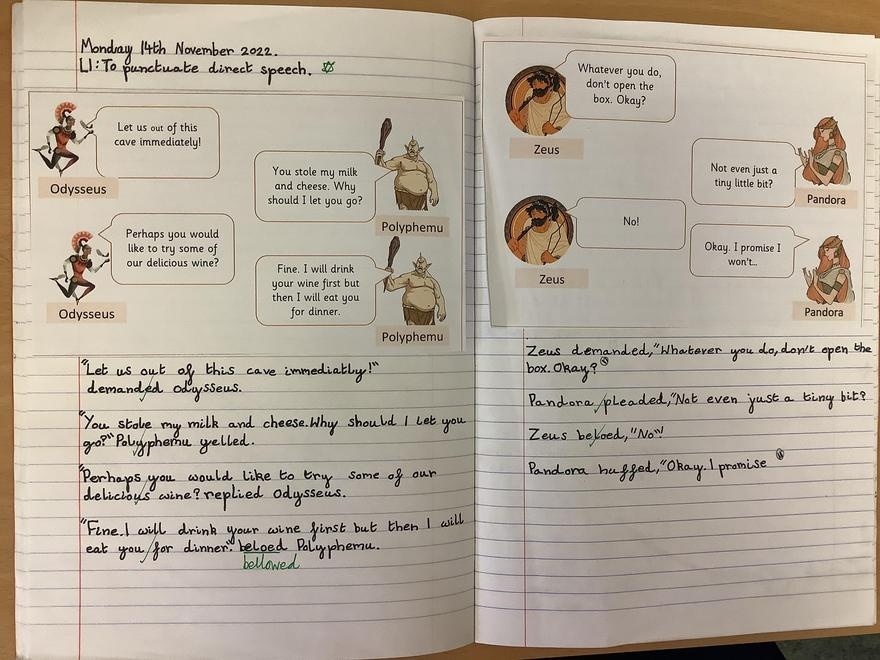 Monday 14th November 2022.
LI: To punctuate direct speech.
Let us out of this
cave immediately!
Odysseus
You stole my milk
and cheese. Why
should I let you go?
Polyphemu
Perhaps you would
like to try some of
our delicious wine?
Odysseus
Fine. I will drink
your wine first but
then I will eat you
for dinner.
Polyphemu
"Let us out of this cave immediatly!"
demanded Odysseus.
"You stole my milk and cheese. Why should I let you
go?" Polyphemu yelled.
"Perhaps you would like to try some of our
delicious wine? replied Odysseus.
"Fine. I will drink your wine first but then I will
eat you for dinner". beloed Polyphemu.
bellowed
Whatever you do,
don't open the
box. Okay?
Zeus
Not even just a
tiny little bit?
Pandora
No!
Zeus
Okay. I promise I
won't...
Pandora
Zeus demanded, "Whatever you do, don't open the
box. Okay?
Pandora pleaded, "Not even just a tiny bit?
Zeus beloed, "No"!
Pandora huffed, "Okay. I promise